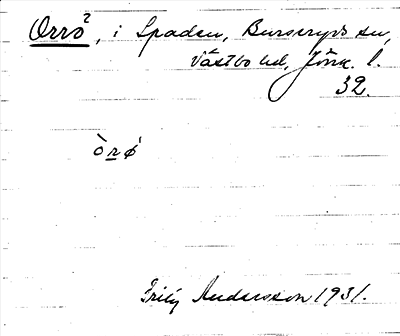 Orrö?, i Spaden, Burseryds sn,
Västbo hd, Jönk. l.
32.
òrö́
Frity Andersson 1931.